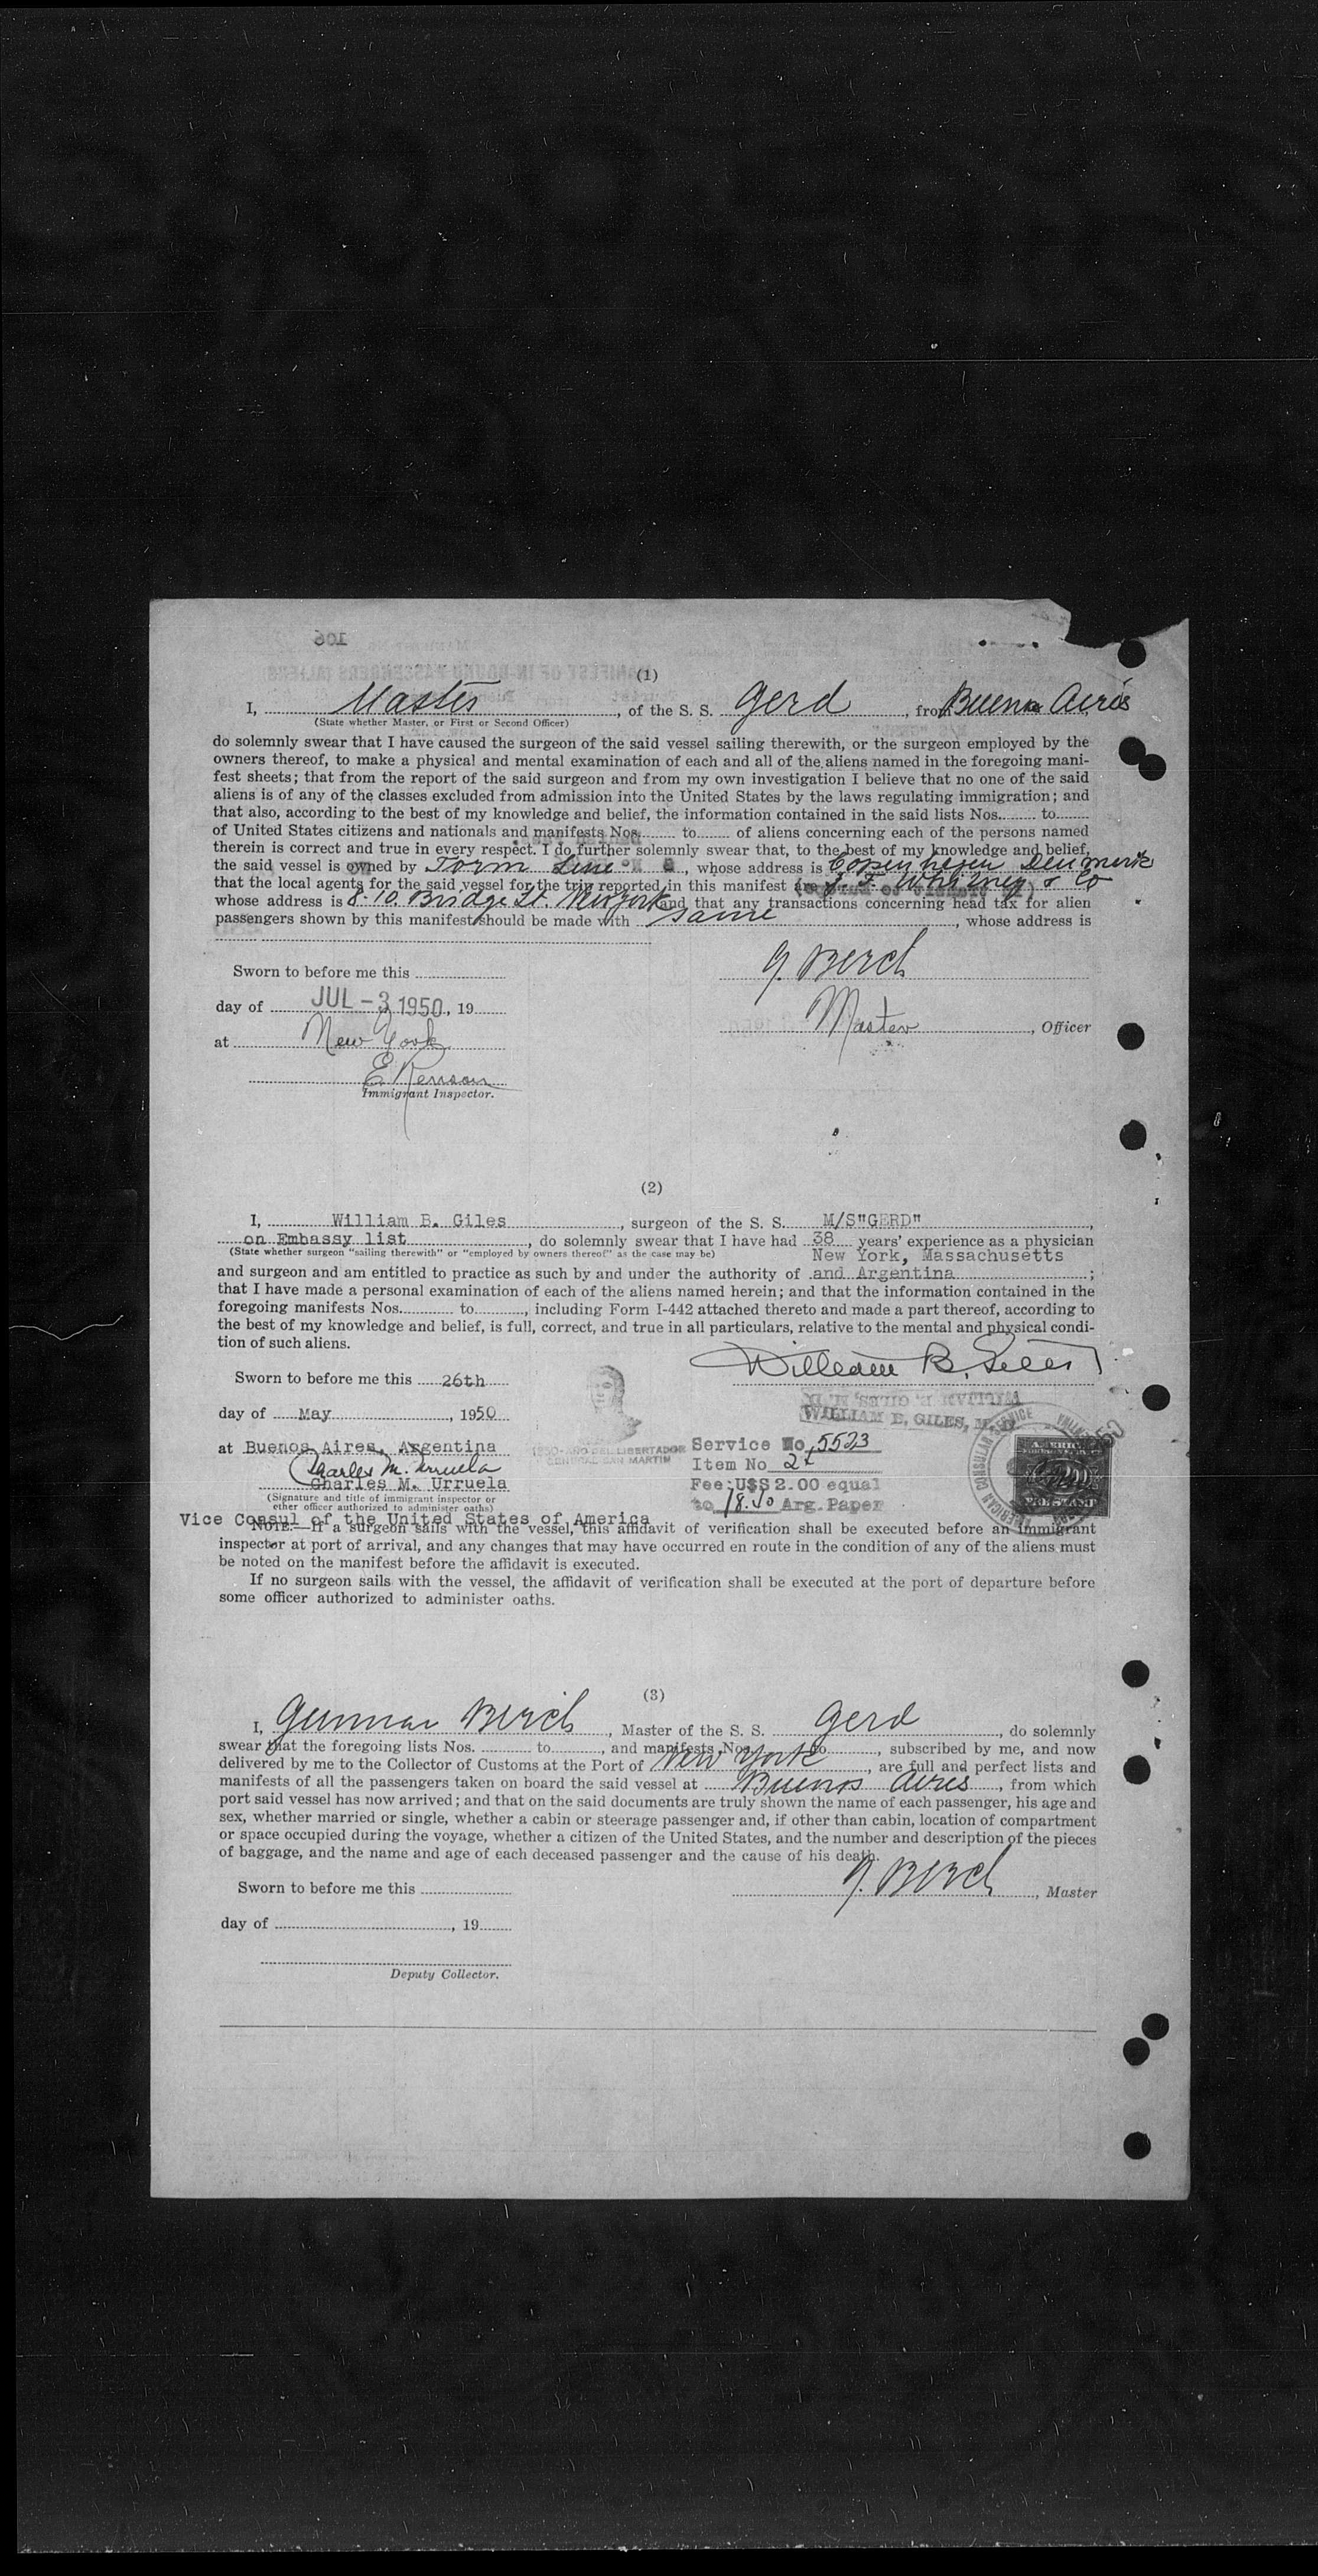 106
(1)
I, Master, of the S. S. Gerd, from Buenos Aires
(State whether Master, or First or Second Officer)
do solemnly swear that I have caused the surgeon of the said vessel sailing therewith, or the surgeon employed by the
owners thereof, to make a physical and mental examination of each and all of the aliens named in the foregoing mani-
fest sheets; that from the report of the said surgeon and from my own investigation I believe that no one of the said
aliens is of any of the classes excluded from admission into the United States by the laws regulating immigration; and
that also, according to the best of my knowledge and belief, the information contained in the said lists Nos. to
of United States citizens and nationals and manifests Nos. to of aliens concerning each of the persons named
therein is correct and true in every respect. I do further solemnly swear that, to the best of my knowledge and belief,
the said vessel is owned by Torm Line, whose address is Copenhagen Denmark
that the local agents for the said vessel for the trip reported in this manifest are J. F. Whitney & Co
whose address is 8-10 Bridge St. New York and that any transactions concerning head tax for alien
passengers shown by this manifest should be made with same, whose address is
Sworn to before me this
G. Berch
day of JUL - 3 1950, 19
Master, Officer
at New York
Immigrant Inspector.
(2)
I, William B. Giles, surgeon of the S. S. M/S"GERD",
on Embassy list, do solemnly swear that I have had 38 years' experience as a physician
(State whether surgeon "sailing therewith" or "employed by owners thereof" as the case may be)
New York, Massachusetts
and surgeon and am entitled to practice as such by and under the authority of and Argentina;
that I have made a personal examination of each of the aliens named herein; and that the information contained in the
foregoing manifests Nos. to, including Form I-442 attached thereto and made a part thereof, according to
the best of my knowledge and belief, is full, correct, and true in all particulars, relative to the mental and physical condi-
tion of such aliens.
William B. Giles
Sworn to before me this 26th
day of May, 1950
WILLIAM B. GILES, M. D.
at Buenos Aires, Argentina
1950-AÑO DEL LIBERTADOR
GENERAL SAN MARTIN
Service No. 5523
Item No 24
Fee: U$S 2.00 equal
to Arg. Paper
AMERICAN CONSULAR SERVICE
FEE STAMP
Charles M. Urruela
Charles M. Urruela
(Signature and title of immigrant inspector or
other officer authorized to administer oaths)
Vice Consul of the United States of America
NOTE.—If a surgeon sails with the vessel, this affidavit of verification shall be executed before an immigrant
inspector at port of arrival, and any changes that may have occurred en route in the condition of any of the aliens must
be noted on the manifest before the affidavit is executed.
If no surgeon sails with the vessel, the affidavit of verification shall be executed at the port of departure before
some officer authorized to administer oaths.
(3)
I, Gunnar Berch, Master of the S. S. Gerd, do solemnly
swear that the foregoing lists Nos. to, and manifests Nos. to, subscribed by me, and now
delivered by me to the Collector of Customs at the Port of New York, are full and perfect lists and
manifests of all the passengers taken on board the said vessel at Buenos Aires, from which
port said vessel has now arrived; and that on the said documents are truly shown the name of each passenger, his age and
sex, whether married or single, whether a cabin or steerage passenger and, if other than cabin, location of compartment
or space occupied during the voyage, whether a citizen of the United States, and the number and description of the pieces
of baggage, and the name and age of each deceased passenger and the cause of his death.
Sworn to before me this
G. Berch, Master
day of, 19
Deputy Collector.